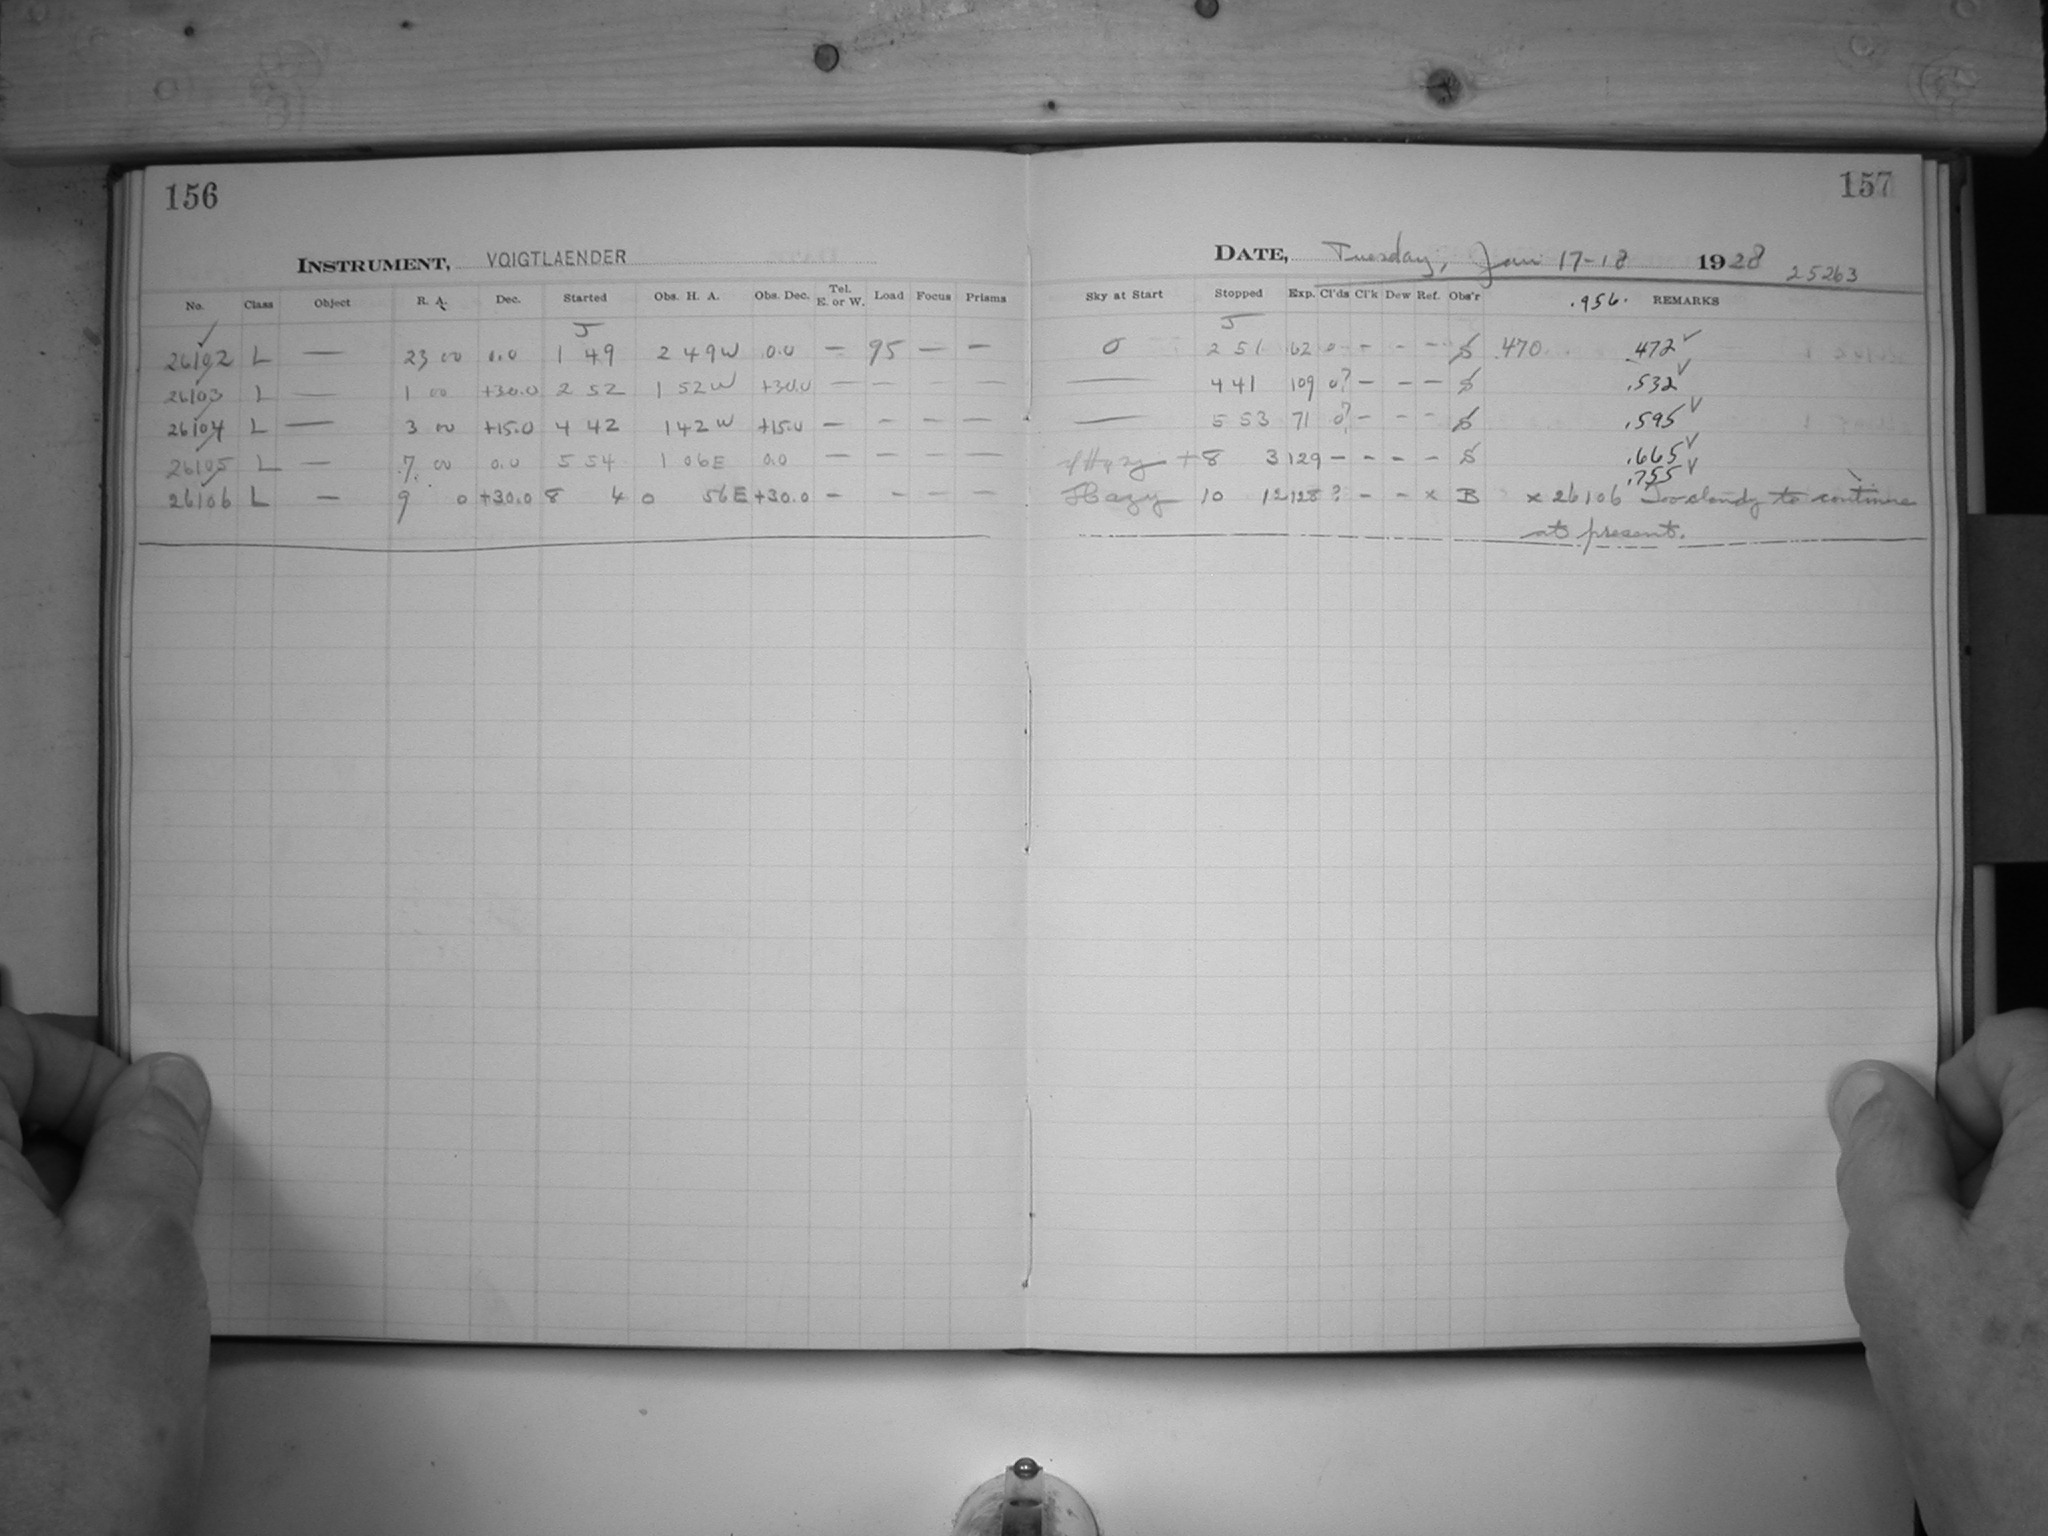 156
157
INSTRUMENT, VOIGTLAENDER
DATE, Tuesday, Jan 17-18 1928 25263
No. Class Object R. A. Dec. Started Obs. H. A. Obs. Dec. Tel. E. or W. Load Focus Prisms Sky at Start Stopped Exp. Cl'ds Cl'k Dew Ref. Obs'r .956. REMARKS
J J
26102 L — 23 00 0.0 1 49 2 49W 0.0 — 95 — — 0 2 51 62 0 - - - S .470 .472 ✓
26103 L — 1 00 +30.0 2 52 1 52W +30.0 — — — — — 4 41 109 0? - - - S .532 ✓
26104 L — 3 00 +15.0 4 42 1 42W +15.0 — - - — — 5 53 71 0? - - - S .595 ✓
26105 L — 7 00 0.0 5 54 1 06E 0.0 — — — — Hazy + 8 3 129 - - - - S .665 ✓
.755 ✓
26106 L — 9 0 +30.0 8 4 0 56E +30.0 — - — — Hazy 10 12 128 ? - - x B x 26106 Too cloudy to continue
at present.